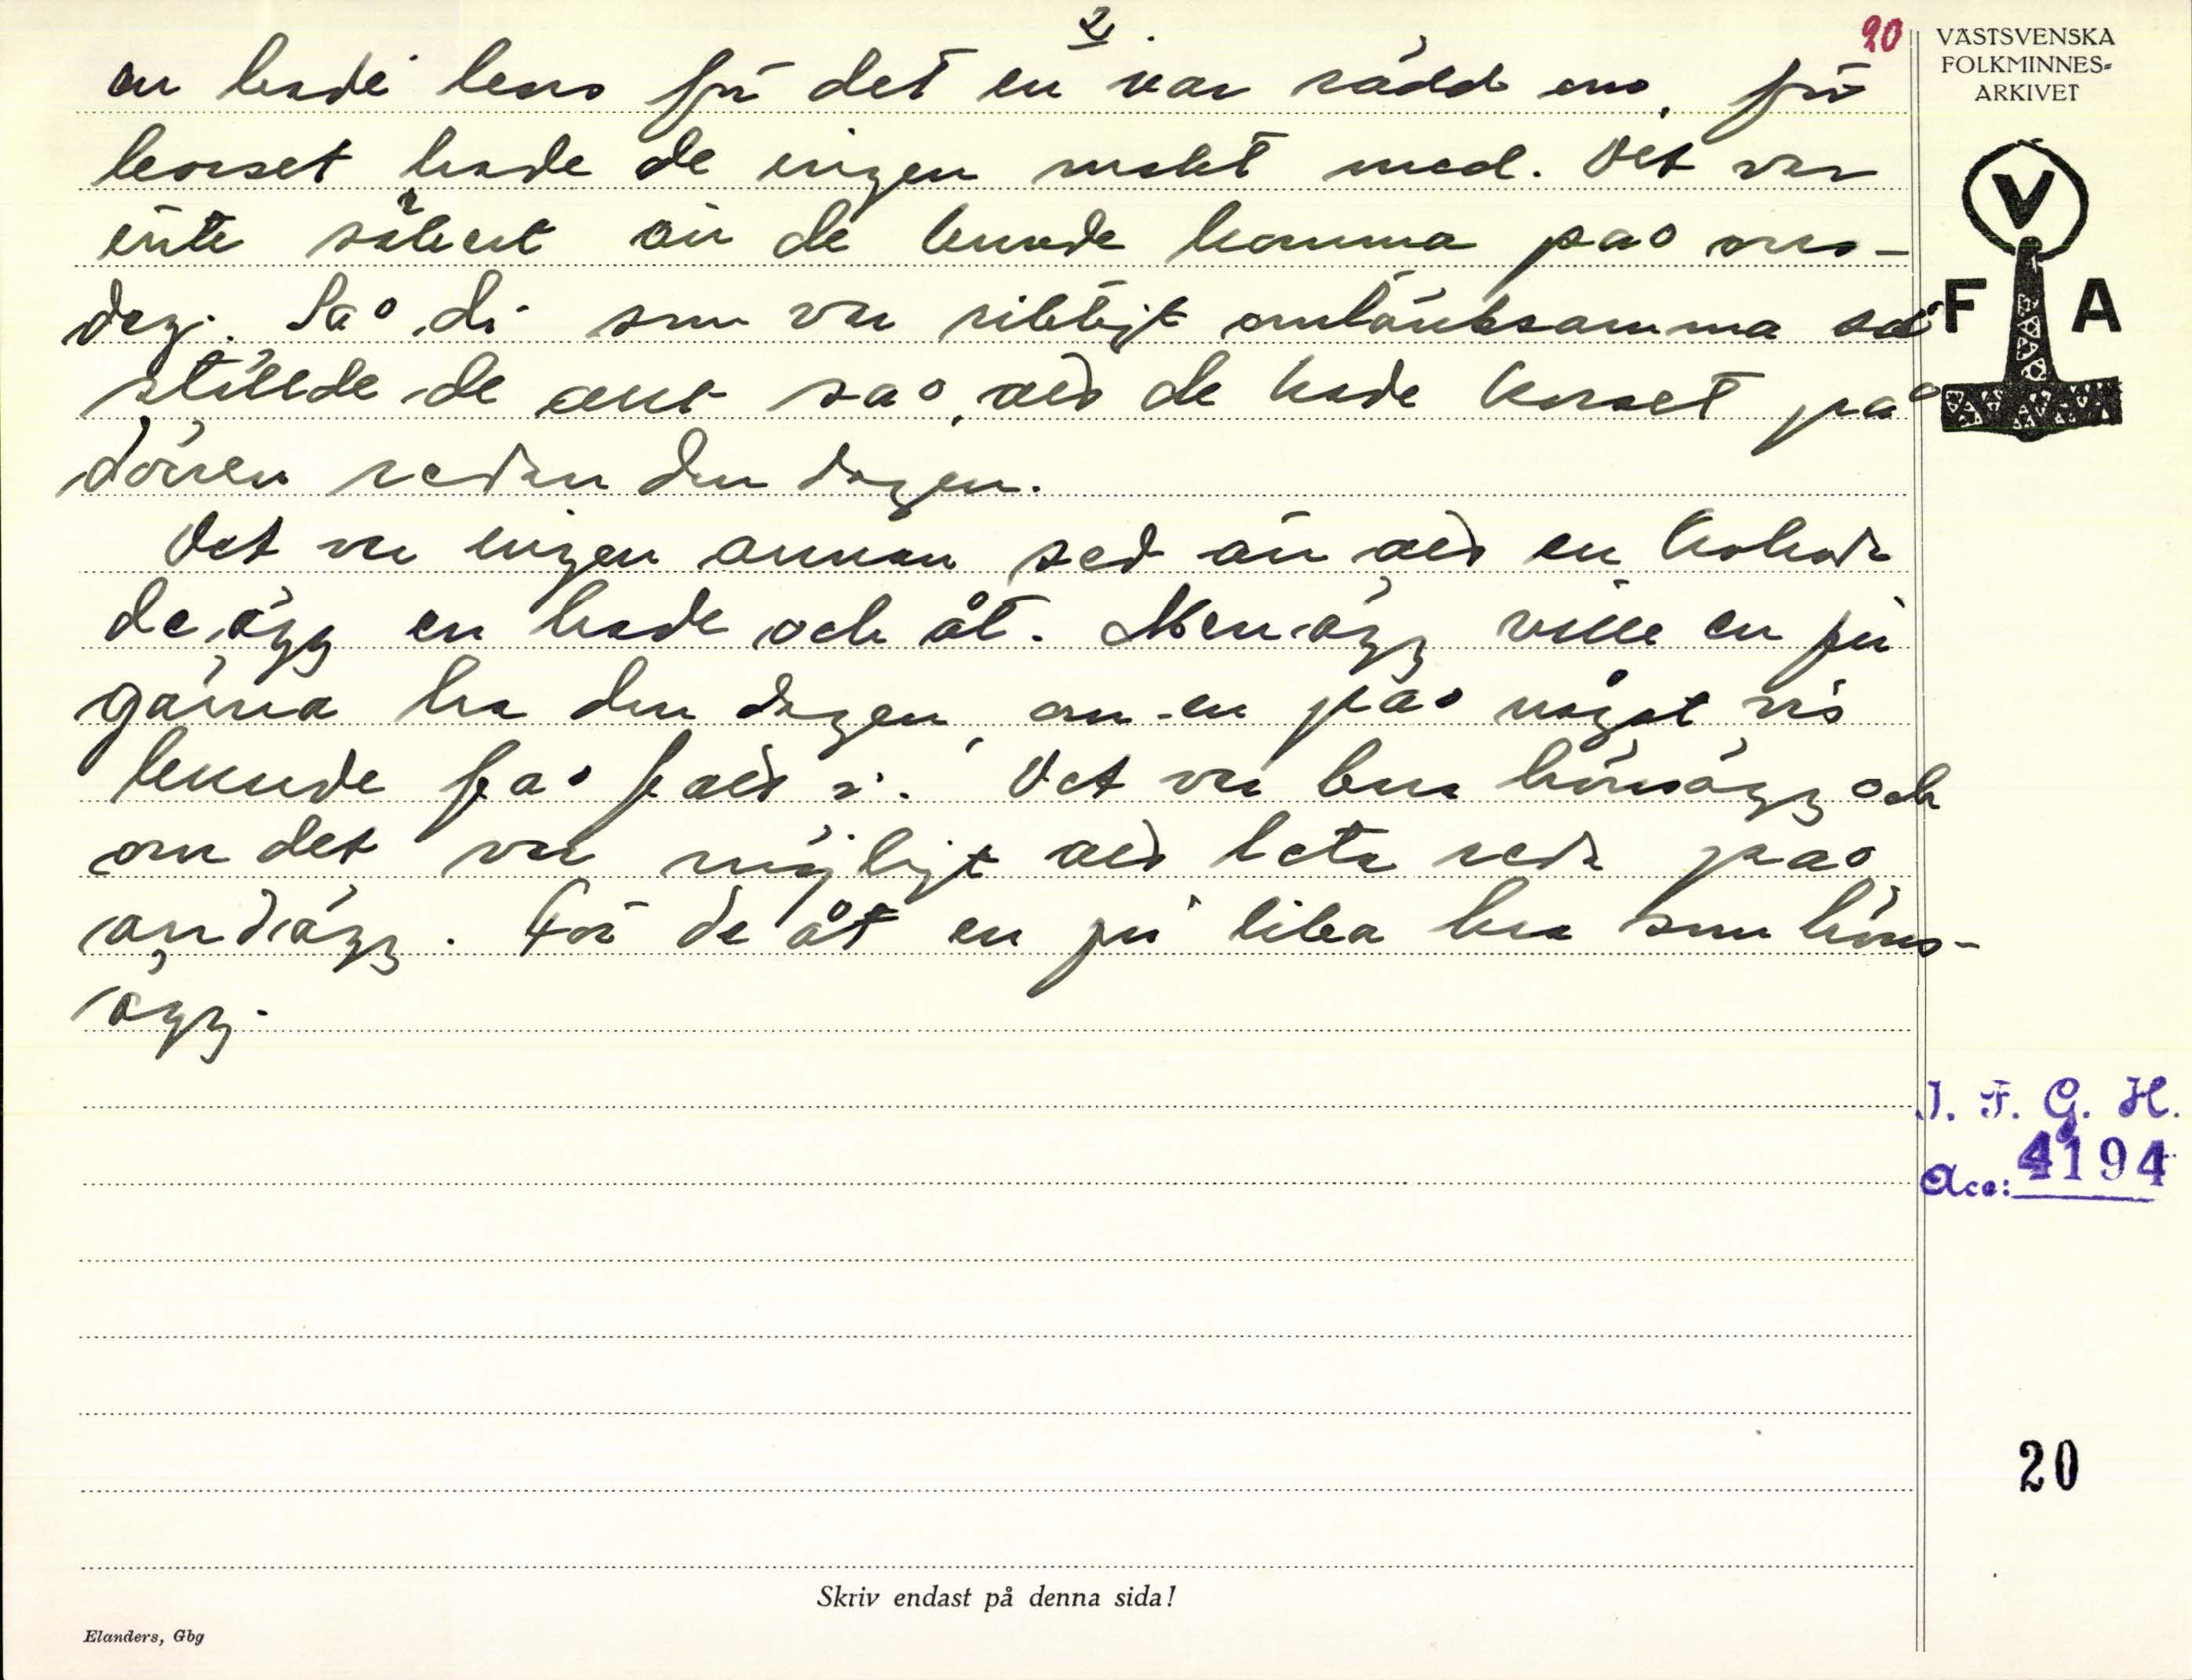 2.
20
en hade kors för det en var rädd om, för
korset hade de ingen makt med. Det var
inte säkert än de kunde komma på ons-
dag. Så di som var riktigt omtänksamma så
ställde de allt så, aed de hade korset på
dörren redan den dagen.
Det var ingen annan sed än aed en kokade
de ägg en hade och åt. Men ägg ville en ju
gärna ha den dagen, om en på något vis
kunde få faed i. Det var bara hönsägg och
om det var möjligt aed leta reda på
andägg. För de åt en ju lika bra som höns-
ägg.
VÄSTSVENSKA
FOLKMINNES-
ARKIVET
V
F A
I. F. G. H.
Acc: 4194
20
Skriv endast på denna sida!
Elanders, Gbg